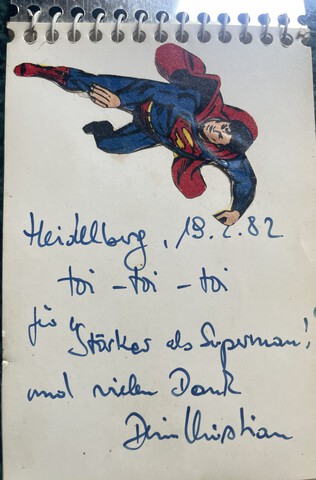 Heidelberg, 18.2.82
toi - toi - toi
für "Stärker als Superman!
und vielen Dank
Dein Christian